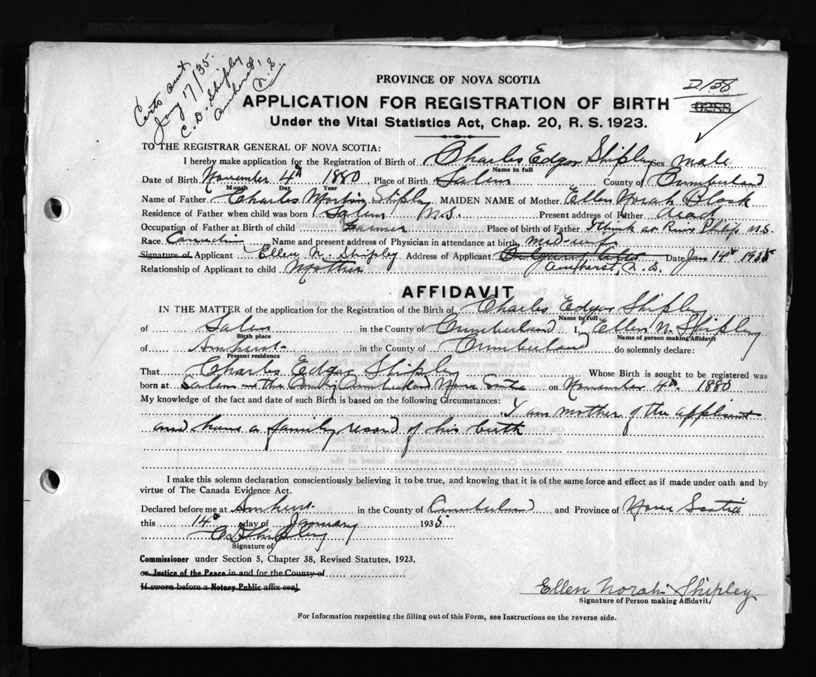 Certs sent
Jany 17/35.
C. D. Shipley
Amherst,
N. S.
PROVINCE OF NOVA SCOTIA
0255
APPLICATION FOR REGISTRATION OF BIRTH
Under the Vital Statistics Act, Chap. 20, R. S. 1923.
TO THE REGISTRAR GENERAL OF NOVA SCOTIA:
I hereby make application for the Registration of Birth of Charles Edgar Shipley Sex male
Name in full
Date of Birth November 4th 1880 Place of Birth Salem County of Cumberland
Month Day Year
Name of Father Charles Shipley MAIDEN NAME of Mother Ellen Norah
Residence of Father when child was born Salem N.S. Present address of Father dead
Occupation of Father at Birth of child Farmer Place of birth of Father think at River Philip N.S.
Race Canadian Name and present address of Physician in attendance at birth mid-wife
Signature of Applicant Ellen N. Shipley Address of Applicant Date Jan 14th 1935
Relationship of Applicant to child Mother Amherst, N.S.
AFFIDAVIT
IN THE MATTER of the application for the Registration of the Birth of Charles Edgar Shipley
Name in full
of Salem in the County of Cumberland I, Ellen N. Shipley
Birth place Name of person making Affidavit
of Amherst in the County of Cumberland do solemnly declare:
Present residence
That Charles Edgar Shipley Whose Birth is sought to be registered was
born at Salem in the County Cumberland Nova Scotia on November 4th 1880
My knowledge of the fact and date of such Birth is based on the following Circumstances: I am mother of the applicant
and have a family record of his birth
I make this solemn declaration conscientiously believing it to be true, and knowing that it is of the same force and effect as if made under oath and by
virtue of The Canada Evidence Act.
Declared before me at Amherst in the County of Cumberland and Province of Nova Scotia
this 14th day of January 1935
C. D. Shipley
Signature of
Commissioner under Section 5, Chapter 38, Revised Statutes, 1923,
or Justice of the Peace in and for the County of
If sworn before a Notary Public affix seal
Ellen Norah Shipley
Signature of Person making Affidavit
For Information respecting the filling out of this Form, see Instructions on the reverse side.